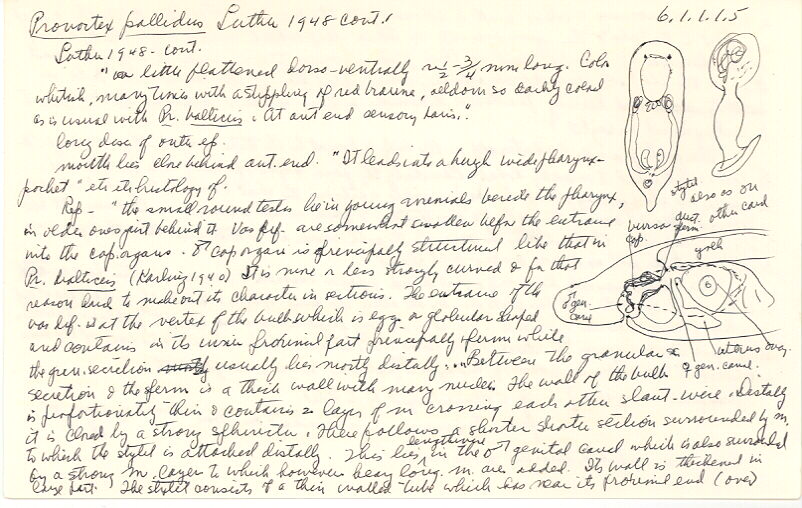 Provortex pallidus Luther 1948 cont.
6.1.1.1.5
Luther 1948 - cont.
"a little flattened dorso-ventrally ½ - ¾ mm long. Color
whitish, many times with a stippling of red brown, seldom so darkly colored
as is usual with Pr. balticus. At ant end sensory hairs."
long desc of outer ep.
mouth lies close behind ant. end. "It leads into a wide pharynx-
pocket" etc its histology of.
Rep - "the small round testes lie in young animals beside the pharynx,
in older ones just behind it Vas def. are somewhat swollen before the entrance
into the cop. organs. ♂ cop organ is principally structured like that in
Pr. balticus (Karling 1940) It is more or less strongly curved & for that
reason hard to make out its character in sections. The entrance of the
vas def. is at the vertex of the bulb which is egg or globular shaped
and contains in its proximal part principally sperm while
the gran. secretion usually lies mostly distally... Between the granular
secretion & the sperm is a thick wall with many nuclei The wall of the bulb
is proportionately thin & contains 2 layers of m crossing each other slant-wise. Distally
it is closed by a strong sphincter. There follows a shorter section surrounded by m.
to which the stylet is attached distally. This lies lengthwise in the ♂ genital canal which is also surrounded
by a strong m. layer to which however long. m. are added. Its wall is thickened in
part. The stylet consists of a thin walled tube which has near its proximal end (over)
stylet
also as on
other card
bursa
cop.
duct.
sperm.
yolk
♂ gen.
canal
uterus
ovary
♀ gen. canal